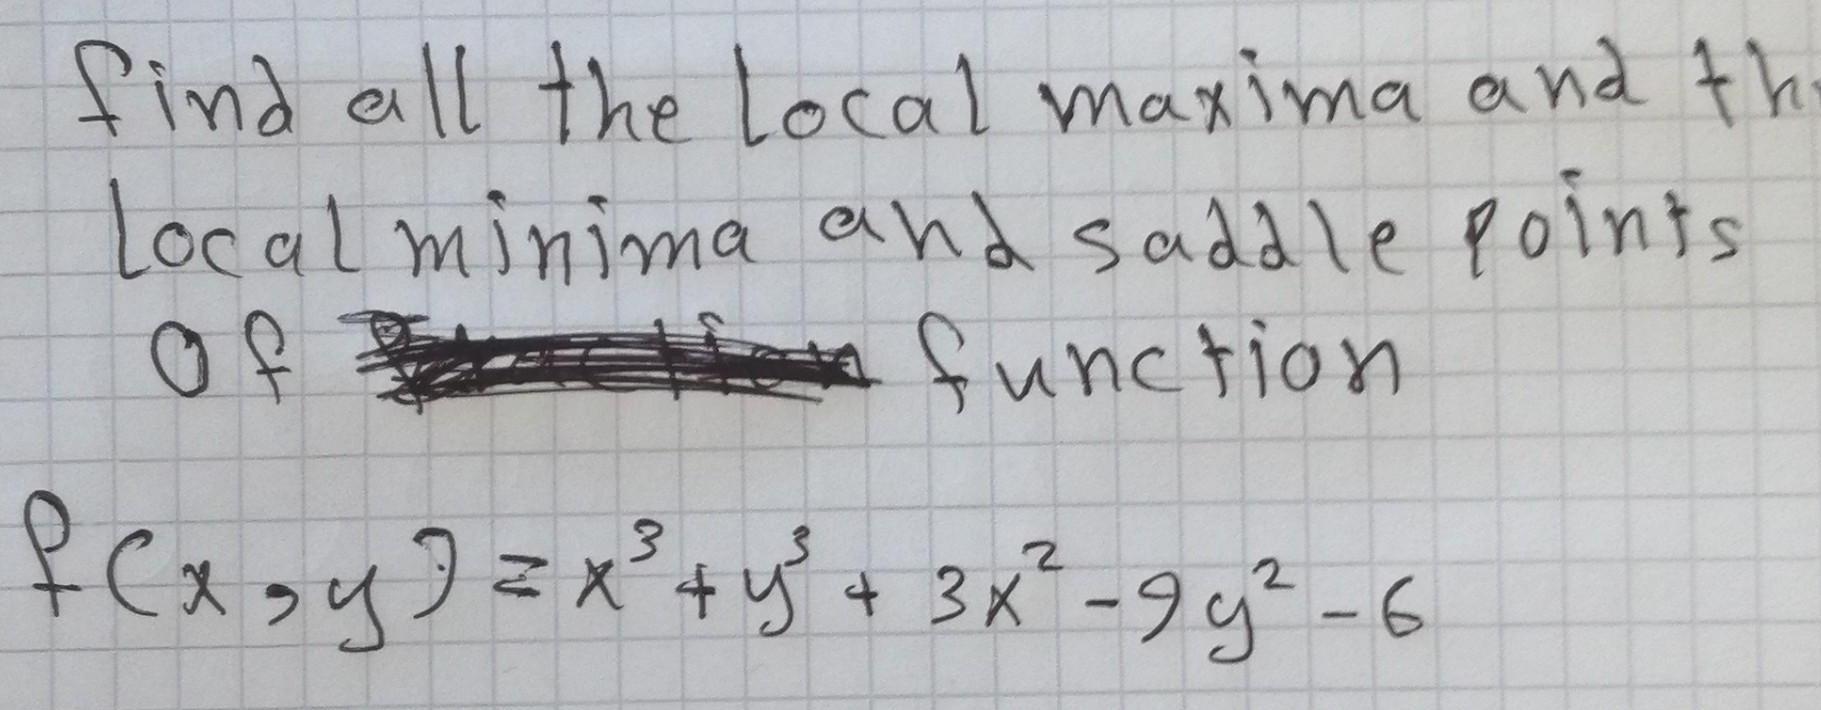 find all the local maxima and th
local minima and saddle points
of function
f(x,y)=x³+y³+3x²-9y²-6